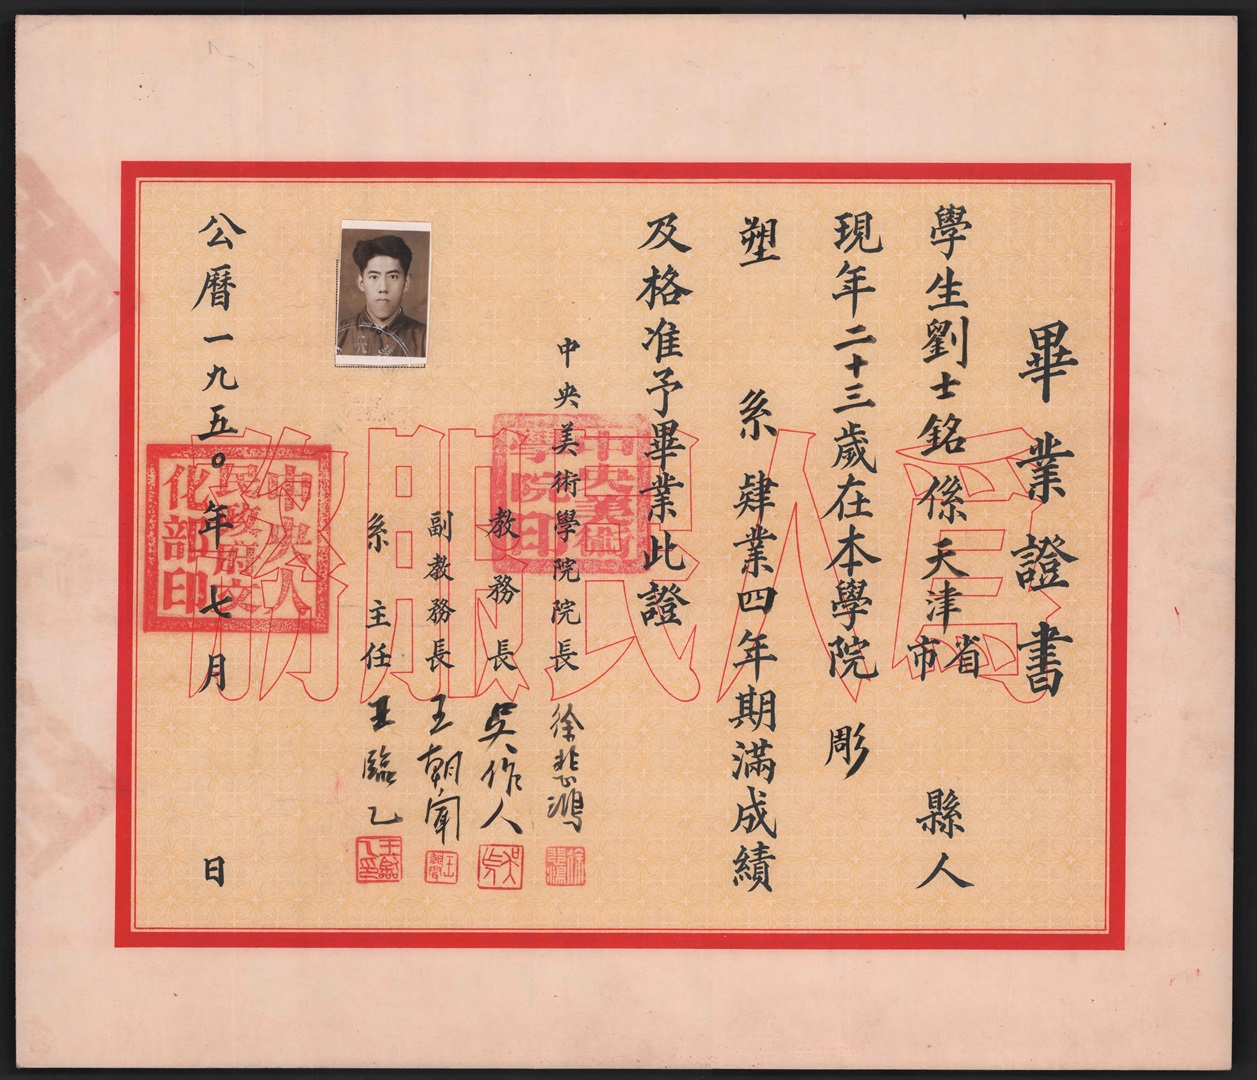 畢業證書
學生劉士銘係天津省市縣人
現年二十三歲在本學院彫
塑系肄業四年期滿成績
及格准予畢業此證
中央美術學院院長徐悲鴻
教務長吳作人
副教務長王朝聞
系主任王臨乙
公曆一九五〇年七月日
為人民服務
中央美術學院印
中央人民政府文化部印
徐悲鴻
吳
王朝聞
王臨乙印